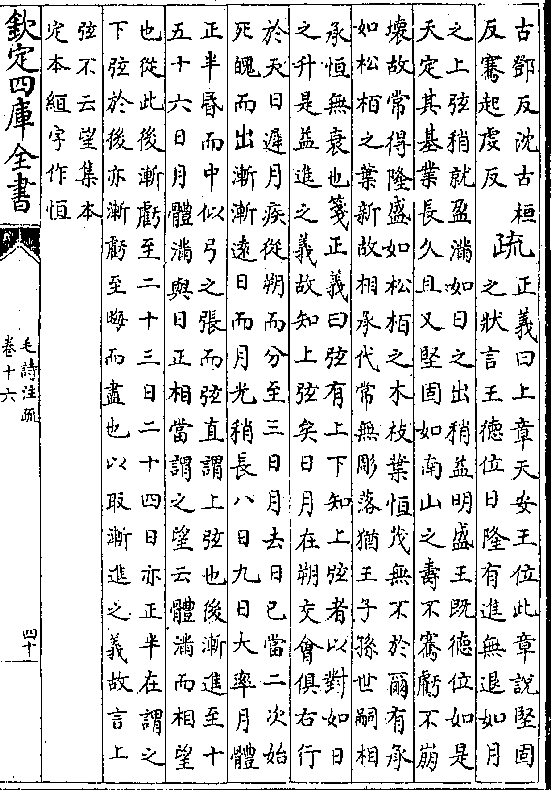 古鄧反沈古桓
反騫起虔反
疏
正義曰上章天安王位此章說堅固
之狀言王德位日隆有進無退如月
之上弦稍就盈滿如日之出稍益明盛王既德位如是
天定其基業長久且又堅固如南山之壽不騫虧不崩
壞故常得隆盛如松柏之木枝葉恒茂無不於爾有承
如松柏之葉新故相承代常無彫落猶王子孫世嗣相
承恒無衰也箋正義曰弦有上下知上弦者以對如日
之升是益進之義故知上弦矣日月在朔交會俱右行
於天日遲月疾從朔而分至三日月去日已當二次始
死魄而出漸漸遠日而月光稍長八日九日大率月體
正半昏而中似弓之張而弦直謂上弦也後漸進至十
五十六日月體滿與日正相當謂之望云體滿而相望
也從此後漸虧至二十三日二十四日亦正半在謂之
下弦於後亦漸虧至晦而盡也以取漸進之義故言上
弦不云望集本
定本絙字作恒
欽定四庫全書
毛詩注疏
卷十六
四十